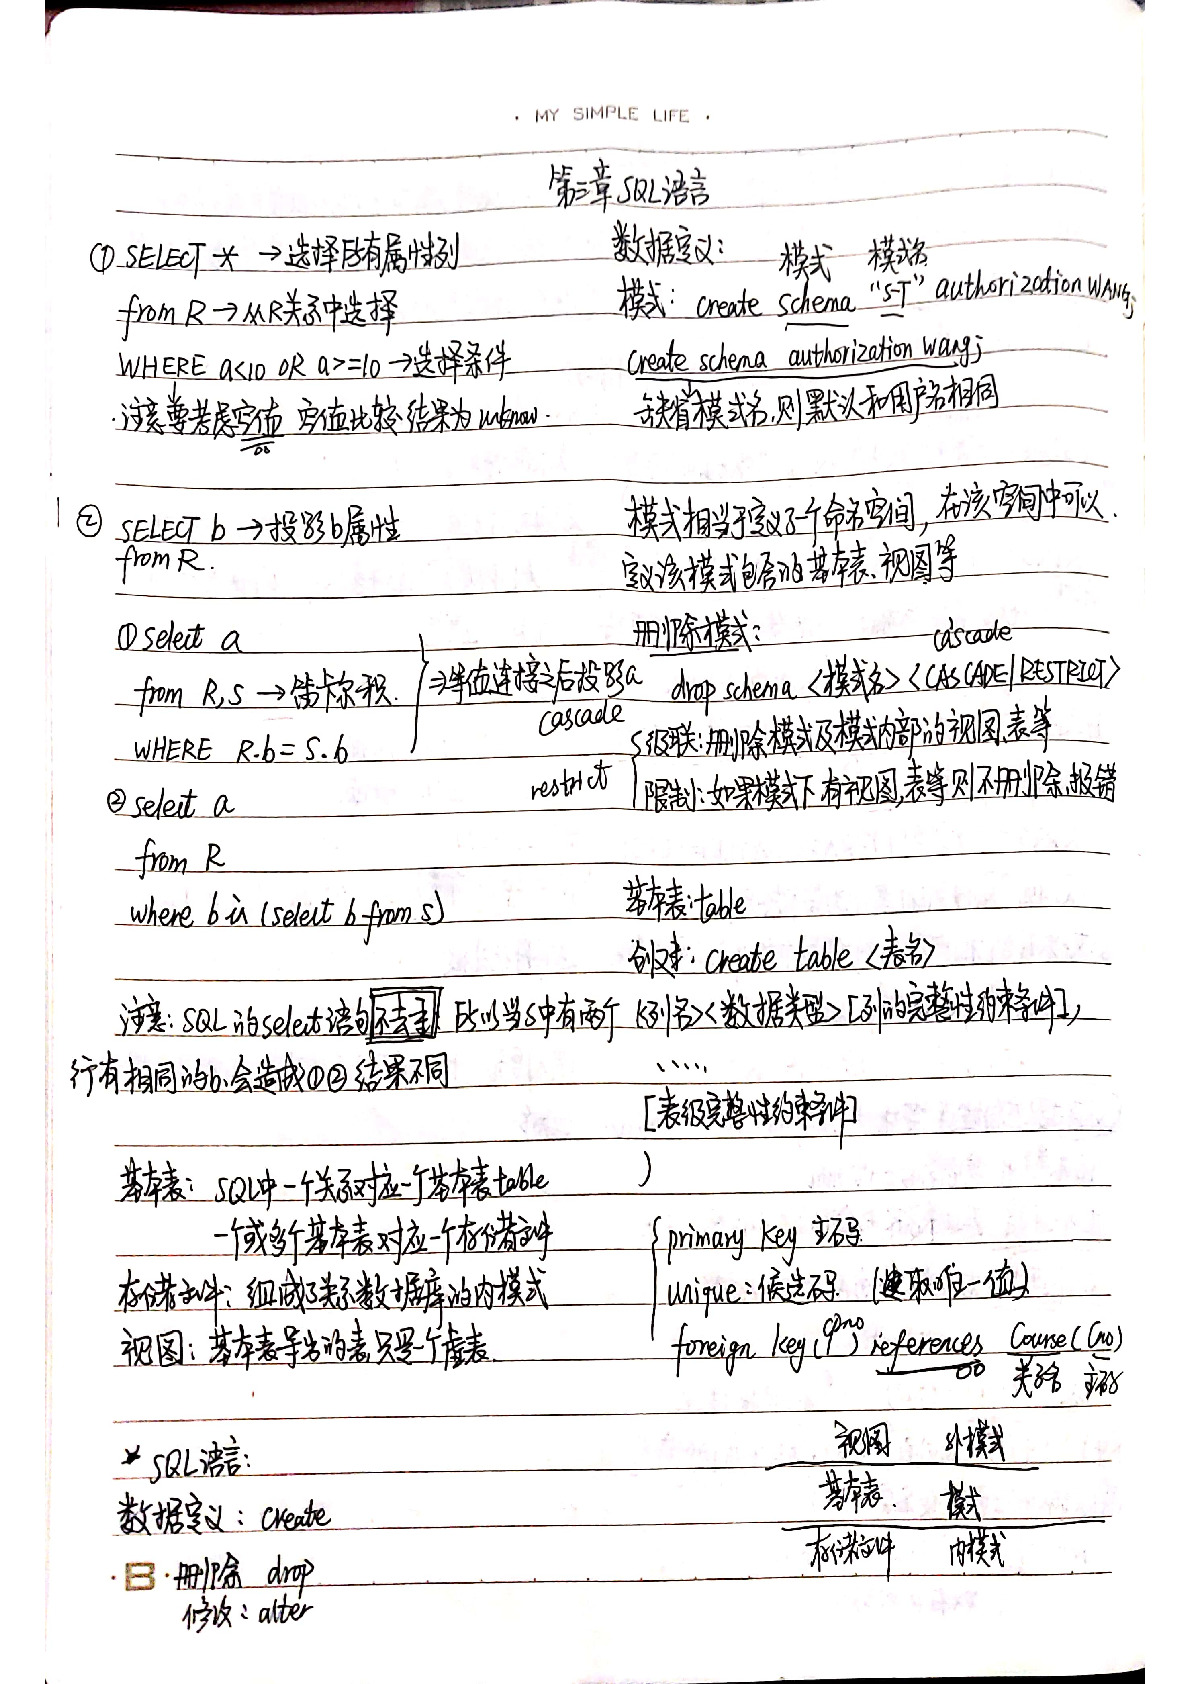 · MY SIMPLE LIFE ·
第三章 SQL语言
① SELECT * →选择所有属性列
from R → 从R关系中选择
WHERE a<10 OR a>=10 →选择条件
注意要考虑空值 空值比较结果为unknow.
② SELECT b →投影b属性
from R.
① select a
from R,S →笛卡尔积.
WHERE R.b = S.b
⇒等值连接之后投影a
② select a
from R
where b in (select b from s)
注意: SQL的select语句不去重! 所以当S中有两个
行有相同的b.会造成①②结果不同
基本表: SQL中一个关系对应一个基本表table
一个或多个基本表对应一个存储文件
存储文件: 组成了关系数据库的内模式
视图: 基本表导出的表,只是一个虚表.
* SQL语言:
数据定义: create
·B· 删除 drop
修改: alter
数据定义:
模式 模式名
模式: create schema "S-T" authorization WANG;
create schema authorization wang;
缺省模式名,则默认和用户名相同
模式相当于定义了一个命名空间, 在该空间中可以.
定义该模式包含的基本表、视图等
删除模式:
cascade
drop schema <模式名> <CASCADE/RESTRICT>
cascade
级联: 删除模式及模式内部的视图、表等
restrict
限制: 如果模式下有视图,表等则不删除,报错
基本表: table
创建: create table <表名>
(<列名><数据类型>[列的完整性约束条件],
.....
[表级完整性约束条件]
)
primary key 主码
unique: 候选码 (建取唯一值)
foreign key (cpno) references Course(Cno)
关系名 主码
视图 外模式
基本表. 模式
存储文件 内模式